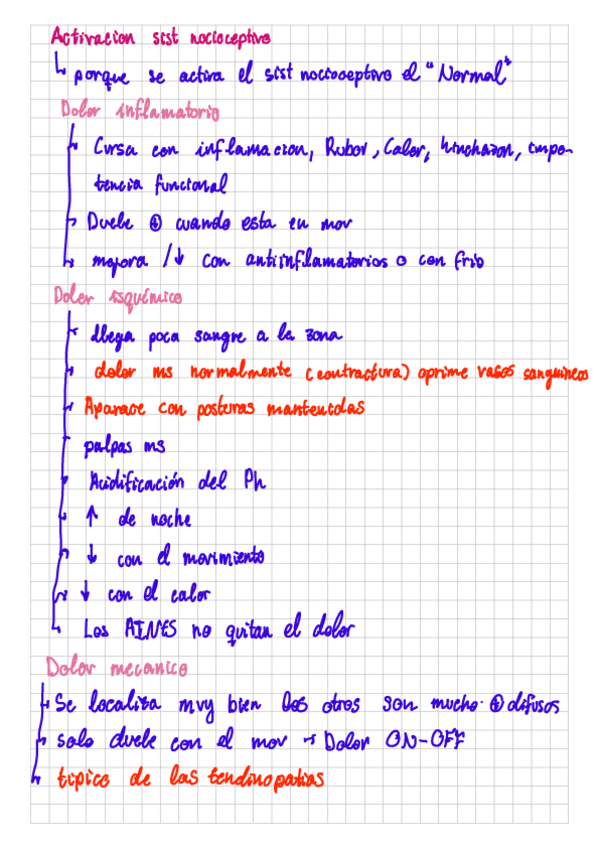 Activacion sist nocioceptivo
↳ porque se activa el sist nocioceptivo el "Normal"
Dolor inflamatorio
↳ Cursa con inflamacion, Rubor, Calor, hinchazon, impo-
tencia funcional
↳ Duele ⊕ cuando esta en mov
↳ mejora /↓ con antiinflamatorios o con frio
Dolor isquémico
↳ llega poca sangre a la zona
↳ dolor ms normalmente (contractura) oprime vasos sanguineos
↳ Aparace con posturas mantenidas
palpas ms
Acidificación del Ph
↑ de noche
↳ ↓ con el movimiento
↳ ↓ con el calor
↳ Los AINES no quitan el dolor
Dolor mecanico
↳ Se localiza muy bien los otros son mucho ⊕ difusos
↳ solo duele con el mov → Dolor ON-OFF
↳ tipico de las tendinopatias